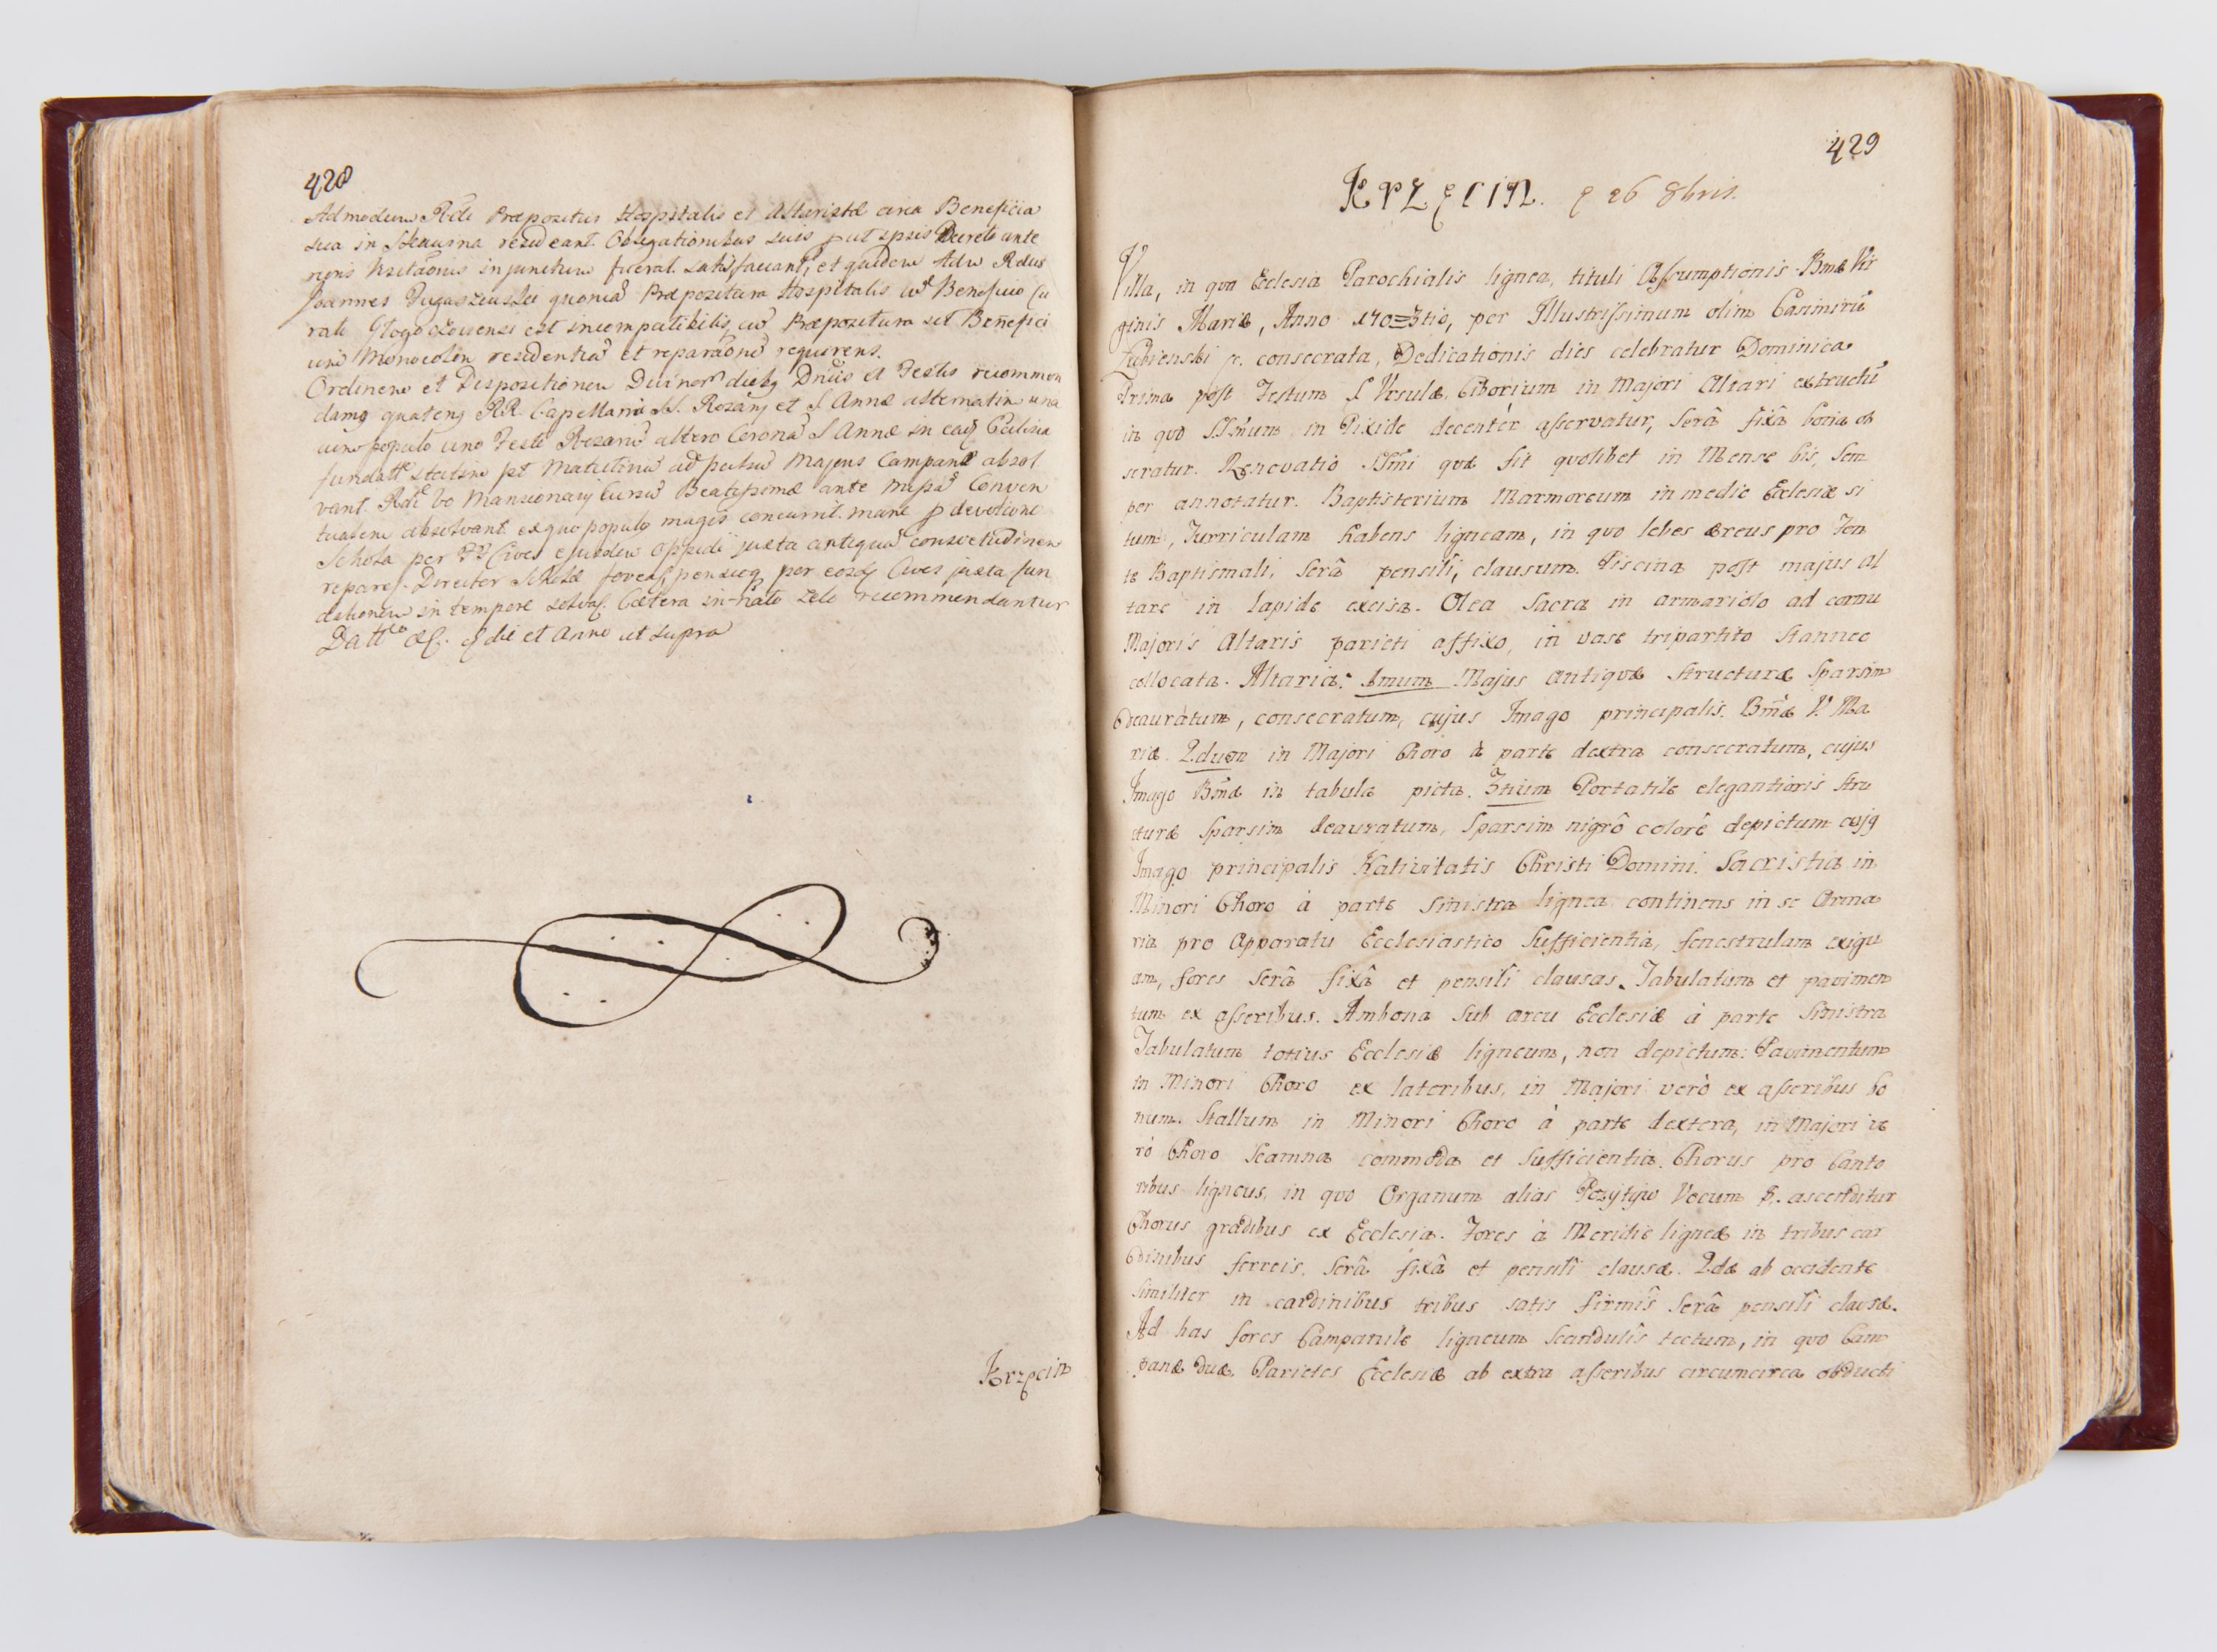 428
Admodum Rdi Præpositus Hospitalis et Altaristæ circa Beneficia
sua in resideant. Obligationibus suis ut ipsis Decreto ante
rioris injunctum fuerat satisfaciant, et quidem Adm Rdus
Joannes quoniã Præpositura Hospitalis cũ Beneficio Cu
rato est incompatibilis, cũ Præpositura sit Benefici
um residentiã et reparaõnẽ requirens.
Ordinem et Dispositionem Divinor diebq Dnĩis et Festis recommen
damq quatenq RR. Capellani SS. Rosarij et S. Annæ alternatim una
cum populo uno Festo Rosariũ altero Coronã S Annæ in eadẽ Ecclesia
statim pt Matutinũ ad pulsũ Majoris Campanæ absol
vant. Mansionarij Cursũ Beatissimæ ante Missã Conven
tualem absolvant ex quo populq magis concurrit. mane devotione
Schola per Cives ejusdem Oppidi juxta antiquã consvetudinem
Director Scholæ per eosdẽ Cives juxta fun
dationem in tempore Cætera in-nato zelo recommendantur
die et Anno ut supra
Krzęcin
429
KRZĘCIN. 26 8bris.
Villa, in qua Ecclesia Parochialis lignea, tituli Assumptionis Bmæ Vir
ginis Mariæ, Anno 1703tio, per Illustrissimum olim Casimirũ
Łubienski consecrata, Dedicationis dies celebratur Dominica
Prima post Festum S Ursulæ. Ciborium in Majori Altari extructũ
in quo SSmum in Pixide decentèr asservatur, serâ fixâ bona ob
seratur. Renovatio SSmi quæ fit quolibet in Mense bis, sem
per annotatur. Baptisterium Marmoreum in medio Ecclesiæ si
tum, Turriculam habens ligneam, in quo lebes æreus pro Fon
te Baptismali, serâ pensili, clausum. Piscina post majus Al
tare in lapide excisa. Olea Sacra in armariolo ad cornu
Majoris Altaris parieti affixo, in vase tripartito Stanneo
collocata. Altaria: 1mum Majus antiquæ structuræ sparsim
deaurâtum, consecratum, cujus Imago principalis. Bmæ V. Ma
riæ. 2dum in Majori Choro à parte dextra consecratum, cujus
Imago Bmæ in tabula picta. 3tium Portatile elegantioris stru
cturæ sparsim deauratum, sparsim nigrô colorê depictum cujq
Imago principalis Nativitatis Christi Domini. Sacristia in
Minori Choro à parte sinistra lignea continens in se Arma
ria pro Apparatu Ecclesiastico Sufficientia, fenestrulam exigu
am, fores serâ fixâ et pensili clausas. Tabulatum et pavimen
tum ex asseribus. Ambona sub arcu Ecclesiæ à parte sinistra
Tabulatum totius Ecclesiæ ligneum, non depictum: Pavimentum
in Minori Choro ex lateribus, in Majori verò ex asseribus bo
num. Stallum in Minori Choro à parte dextera, in Majori ve
rò Choro Scamna commoda et sufficientia. Chorus pro Canto
ribus ligneus, in quo Organum alias Pozytyw Vocum 8. ascenditur
Chorus gradibus ex Ecclesia. Fores à Meridie ligneæ in tribus car
dinibus ferreis. serâ fixâ et pensili clausæ. 2dæ ab occidente
similiter in cardinibus tribus satis firmis serâ pensili clausæ.
Ad has fores Campanile ligneum scandulis tectum, in quo Cam
panæ duæ. Parietes Ecclesiæ ab extra asseribus circumcirca obducti